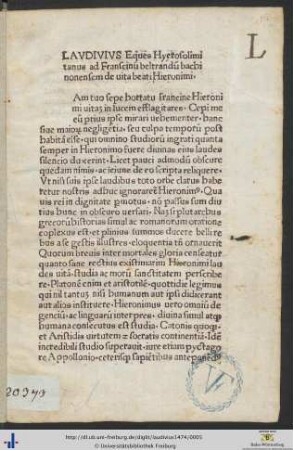 L
LAVDIVIVS Eques Hyerosolimi
tanus ad Franscinū beltrandū bachi
nonensem de uita beati Hieronimi.
Am tuo sepe hortatu francine Hieroni
mi uitaȝ in lucem efflagitare. Cepi me
cū ptius ipse mirari uehementer. hanc
siue maioꝝ negligētia. seu culpa temporū post
habitā esse. qui omnino studioꝝ ingrati quanta
semper in Hieronimo fuere diuinas eius laudes
silencio du xerint. Licet pauci admodū obscure
quedam nimis. ac ieiune de eo scripta reliquere.
Vt nisi suis ipse laudibus toto orbe clarus habe
retur nostris adhuc ignoraret̃ Hieronimꝰ. Qua
uis rei in dignitate pmotus. nō passus sum diu
tius hunc in obscuro uersari. Naȝ si plutarchus
grecoꝝ historias simul ac romanorum oratione
complexus est. et plinius summos ducere belli re
bus a se gestis illustres. eloquentia tñ ornauerit
Quorum breuis inter mortales gloria censeatur
quanto sane rectius existimarim Hieronimi lau
des uitā. studia ac morū sanctitatem perscribe
re. Platonē enim et aristotilē. quottidie legimus
qui nil tantuȝ nisi humanum aut ipsi didicerant
aut alios instituere. Hieronimus orto omniū de
genciū. ac linguarū inter pres. diuina simul atqȝ
humana consecutus est studia. Catonis quoqȝ.
et Aristidis uirtutem τ socratis continentiā. Idē
incredibili studio superauit. iure etium pyctago
re Appollonio. ceterisqȝ sapiētibus ante ponēdꝰ
20949
http://dl.ub.uni-freiburg.de/diglit/laudivius1474/0005